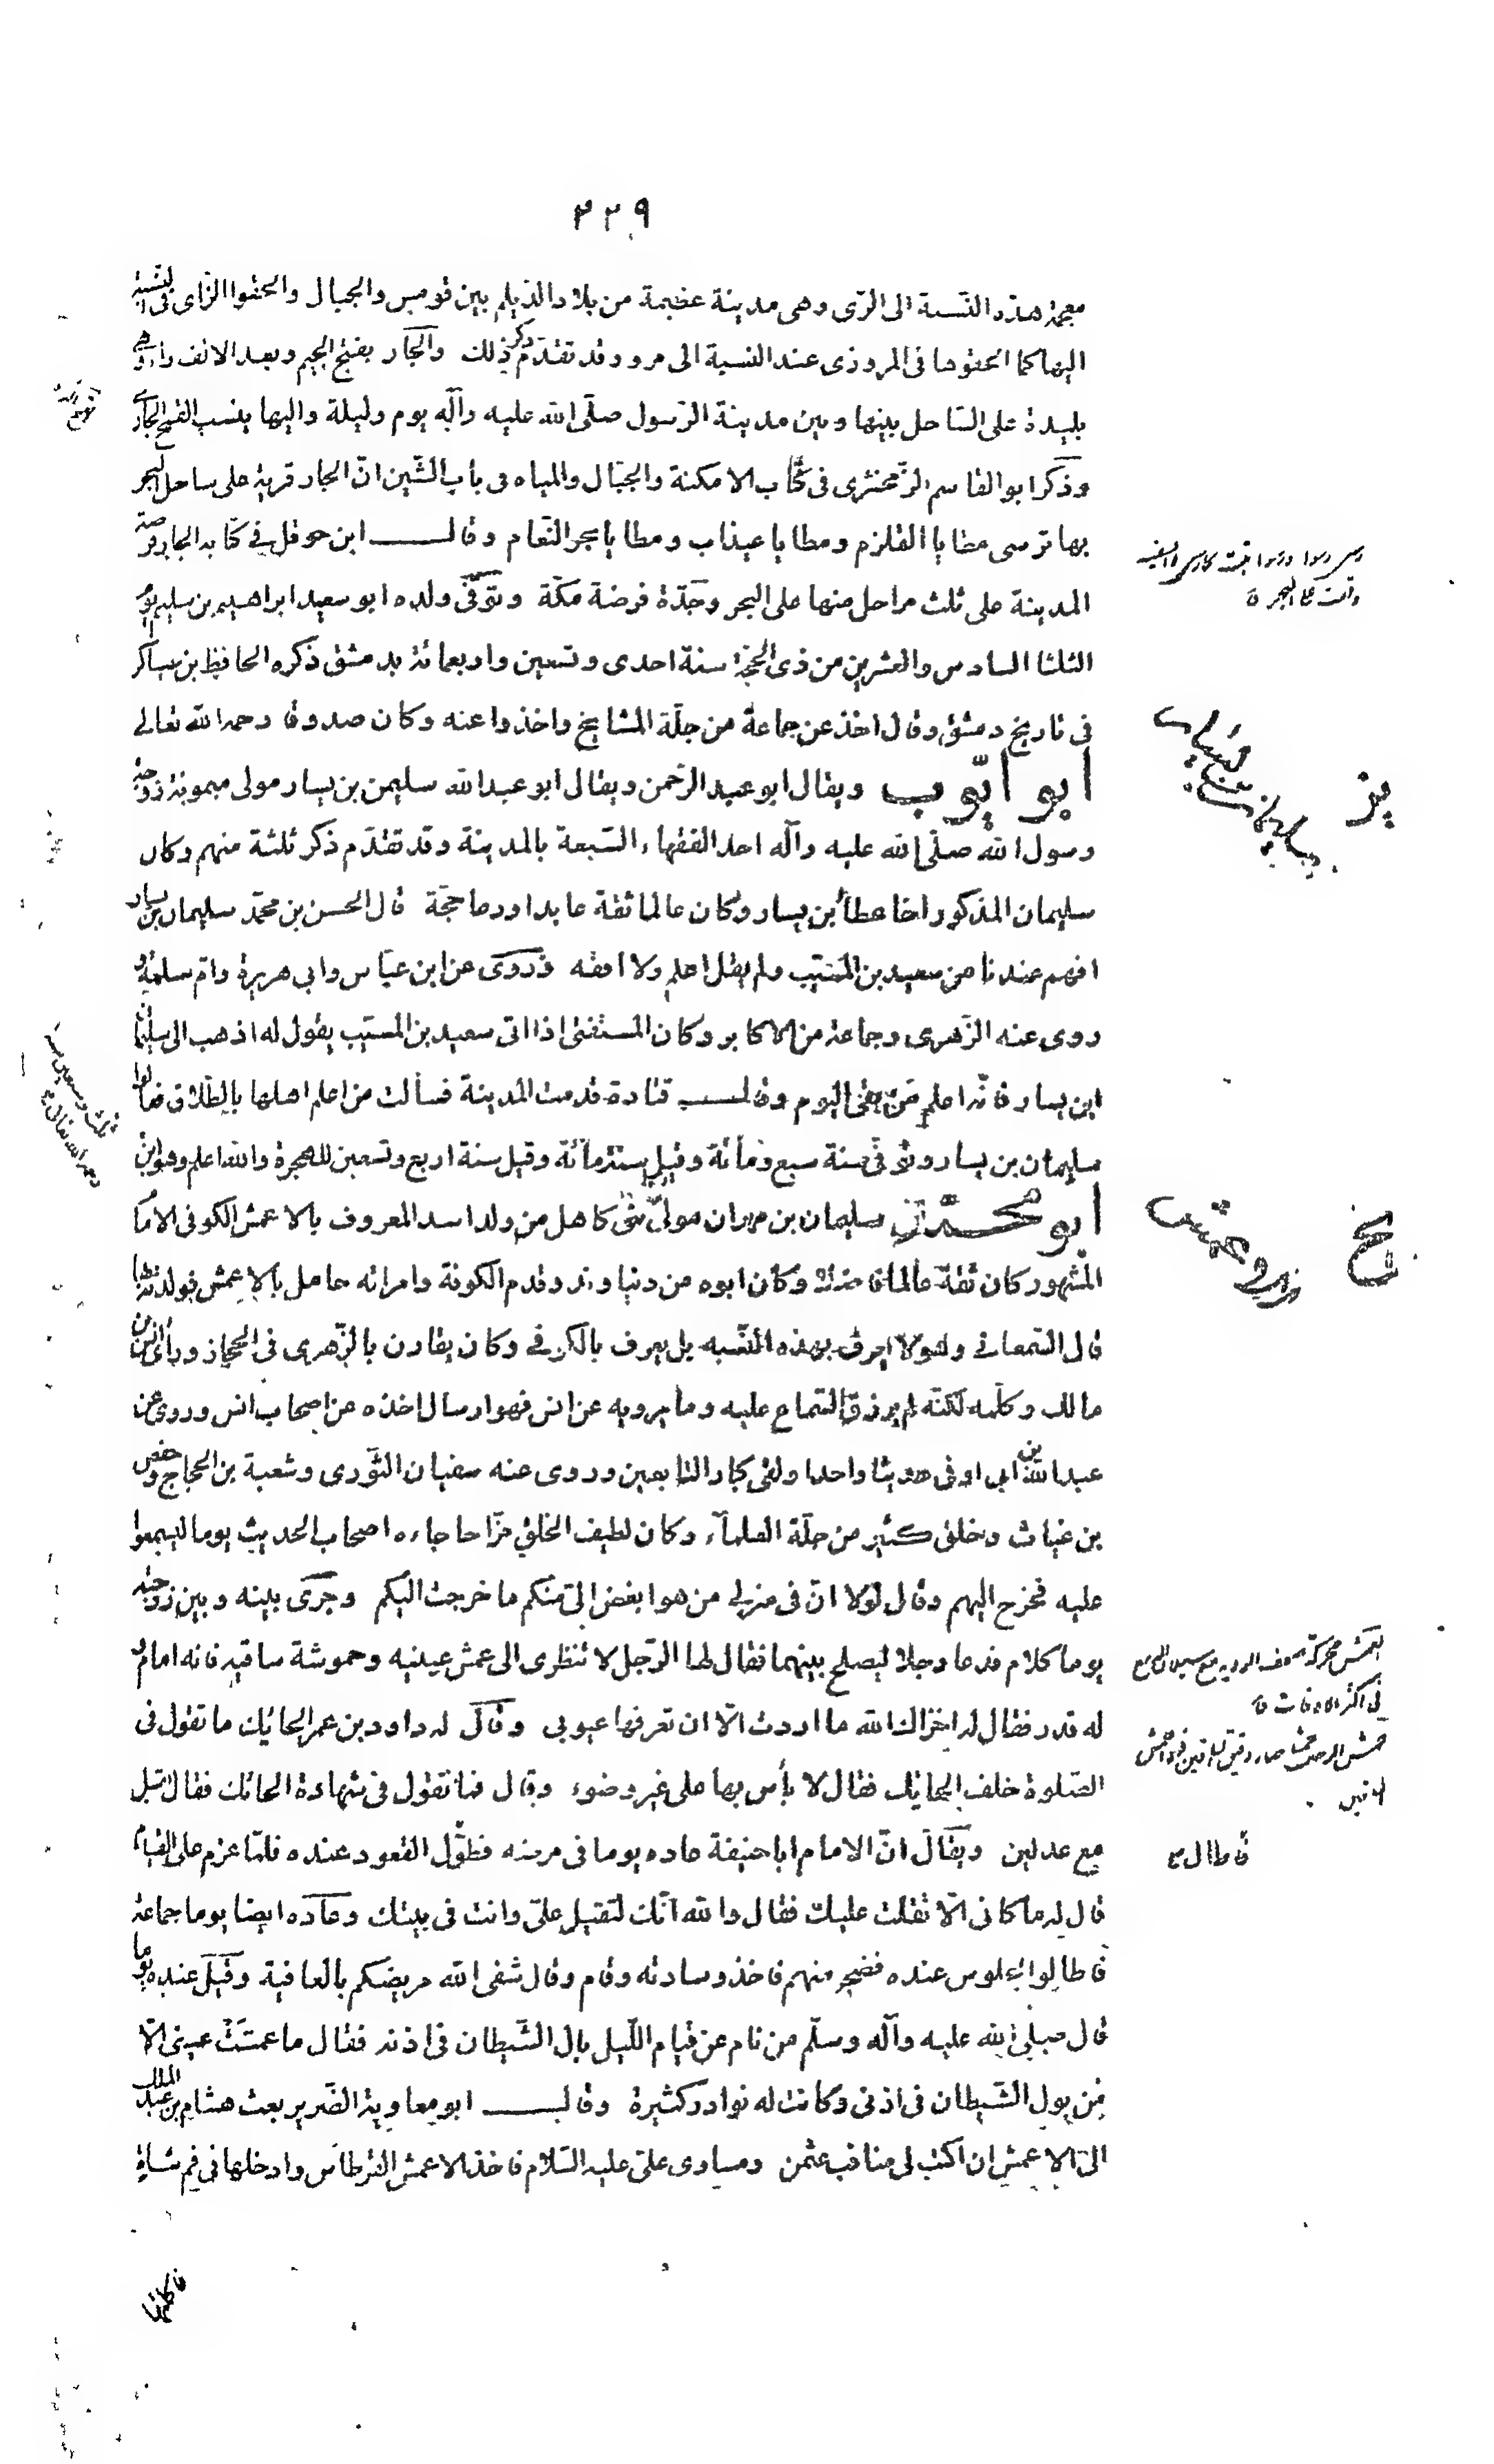 ٢٢٩
معجمة هذه النّسبة الى الرّى وهى مدينة عظيمة من بلاد الدّيلم بين قومس والجبال والحقوا الزّاى فى النّسبة
اليها كما الحقوها فى المروزى عند النسبة الى مرو وقد تقدّم ذكر ذلك والجار بفتح الجيم وبعد الالف راء وهى
بليدة على السّاحل بينها وبين مدينة الرّسول صلّى الله عليه وآله يوم وليلة واليها ينسب القمح الجارى
وذكر ابو القاسم الزّمخشرى فى كتاب الامكنة والجبال والمياه فى باب الشّين انّ الجار قرية على ساحل البحر
بها ترسى مطايا القلزم ومطايا عيذاب ومطايا بحر النّعام وقال ابن حوقل في كتابه الجار فرضة
المدينة على ثلث مراحل منها على البحر وجدّة فرضة مكّة وتوفّى ولده ابو سعيد ابراهيم بن سليم يوم
الثلثا السادس والعشرين من ذى الحجّة سنة احدى وتسعين واربعمائة بدمشق ذكره الحافظ بن عساكر
فى تاريخ دمشق وقال اخذ عن جماعة من جلّة المشايخ واخذوا عنه وكان صدوقا رحمه الله تعالى
ابو ايّوب ويقال ابو عبد الرّحمن ويقال ابو عبد الله سليمن بن يسار مولى ميمونة زوجة
رسول الله صلّى الله عليه وآله احد الفقهاء السّبعة بالمدينة وقد تقدّم ذكر ثلثة منهم وكان
سليمان المذكور اخا عطاء بن يسار وكان عالما ثقة عابدا ورعا حجّة قال الحسن بن محمّد سليمان بن يسار
افهم عندنا من سعيد بن المسّيب ولم يقل اعلم ولا افقه وروى عن ابن عبّاس وابي هريرة وامّ سلمة و
روى عنه الزّهرى وجماعة من الاكابر وكان المستفتى اذا اتى سعيد بن المسّيب يقول له اذهب الى سليمان
ابن يسار فانّه اعلم من بقى اليوم وقال قتادة قدمت المدينة فسألت من اعلم اهلها بالطّلاق فقالوا
سليمان بن يسار وتوفّى سنة سبع ومأئة وقيل سنة مأئة وقيل سنة اربع وتسعين للهجرة والله اعلم وهو ابن
ثلث وسبعين سنة رحمه الله تعالى
ابو محمّد سليمان بن مهران مولى بنى كاهل من ولد اسد المعروف بالاعمش الكوفى الامام
المشهور كان ثقة عالما فاضلا وكان ابوه من دنباوند وقدم الكوفة وامراته حامل بالاعمش فولدته بها
قال السّمعانى وهو لا يعرف بهذه النّسبه بل يعرف بالكوفى وكان يقارن بالزّهرى فى الحجاز وراى انس بن
مالك وكلّمه لكنّه لم يرزق السّماع عليه وما يرويه عن انس فهو ارسال اخذه عن اصحاب انس وروى عن
عبد الله بن ابى اوفى حديثا واحدا ولقى كبار التابعين وروى عنه سفيان الثّورى وشعبة بن الحجاج وحفص
بن غياث وخلق كثير من جلّة العلمآء وكان لطيف الخلق مزّاحا جاءه اصحاب الحديث يوما ليسمعوا
عليه فخرج اليهم وقال لولا انّ فى منزلى من هو ابغض الىّ منكم ما خرجت اليكم وجرى بينه وبين زوجته
يوما كلام فدعا رجلا ليصلح بينهما فقال لها الرّجل لا تنظرى الى عمش عينيه وحموشة ساقيه فانه امام و
له قدر فقال له اخزاك الله ما اردت الّا ان تعرفها عيوبى وقال له داود بن عمر الحائك ما تقول فى
الصّلوة خلف الحائك فقال لا بأس بها على غير وضوء وقال فما تقول فى شهادة الحائك فقال تقبل
مع عدلين ويقال انّ الامام ابا حنيفة عاده يوما فى مرضه فطوّل القعود عنده فلمّا عزم على القيام
قال له ما كانى الّا ثقلت عليك فقال والله انّك لثقيل علىّ وانت فى بيتك وعاده ايضا يوما جماعة
فاطالوا الجلوس عنده فضجر منهم فاخذ وسادته وقام وقال شفى الله مريضكم بالعافية وقيل عنده يوما
قال صلى الله عليه وآله وسلّم من نام عن قيام اللّيل بال الشّيطان فى اذنه فقال ما عمشت عينى الّا
من بول الشّيطان فى اذنى وكانت له نوادر كثيرة وقال ابو معاوية الضّرير بعث هشام بن عبد الملك
الى الاعمش ان اكتب لى مناقب عثمن ومساوى علىّ عليه السّلام فاخذ الاعمش القرطاس وادخلها فى فم شاة
فاطال